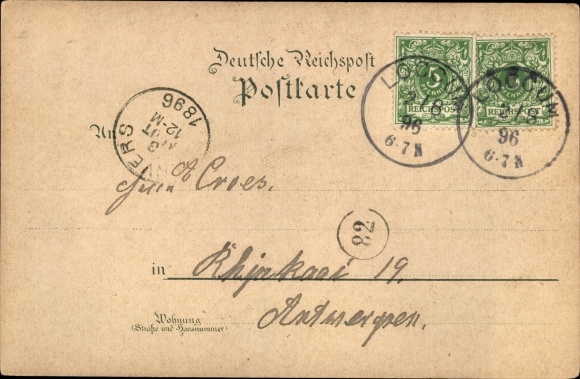 Deutsche Reichspost
Postkarte
5 5
REICHSPOST REICHSPOST
LOCCUM
2/8
96
6-7 N
LOCCUM
2/8
96
6-7 N
ANVERS
3
AOUT
12-M
1896
An
Herrn A Croes.
82
in Rhijnkaai 19.
Antwerpen.
Wohnung
(Straße und Hausnummer)